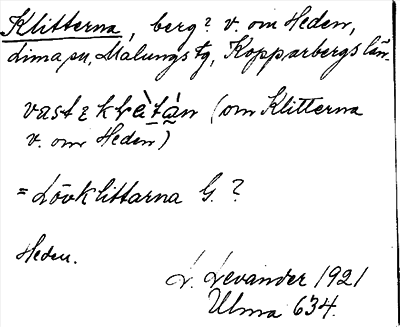 Klitterna, berg? v. om Heden,
Lima sn, Malungs tg, Kopparbergs län.
(om Klitterna
v. om Heden)
= Lövklittarna G. ?
Heden.
L. Levander 1921
Ulma 634.